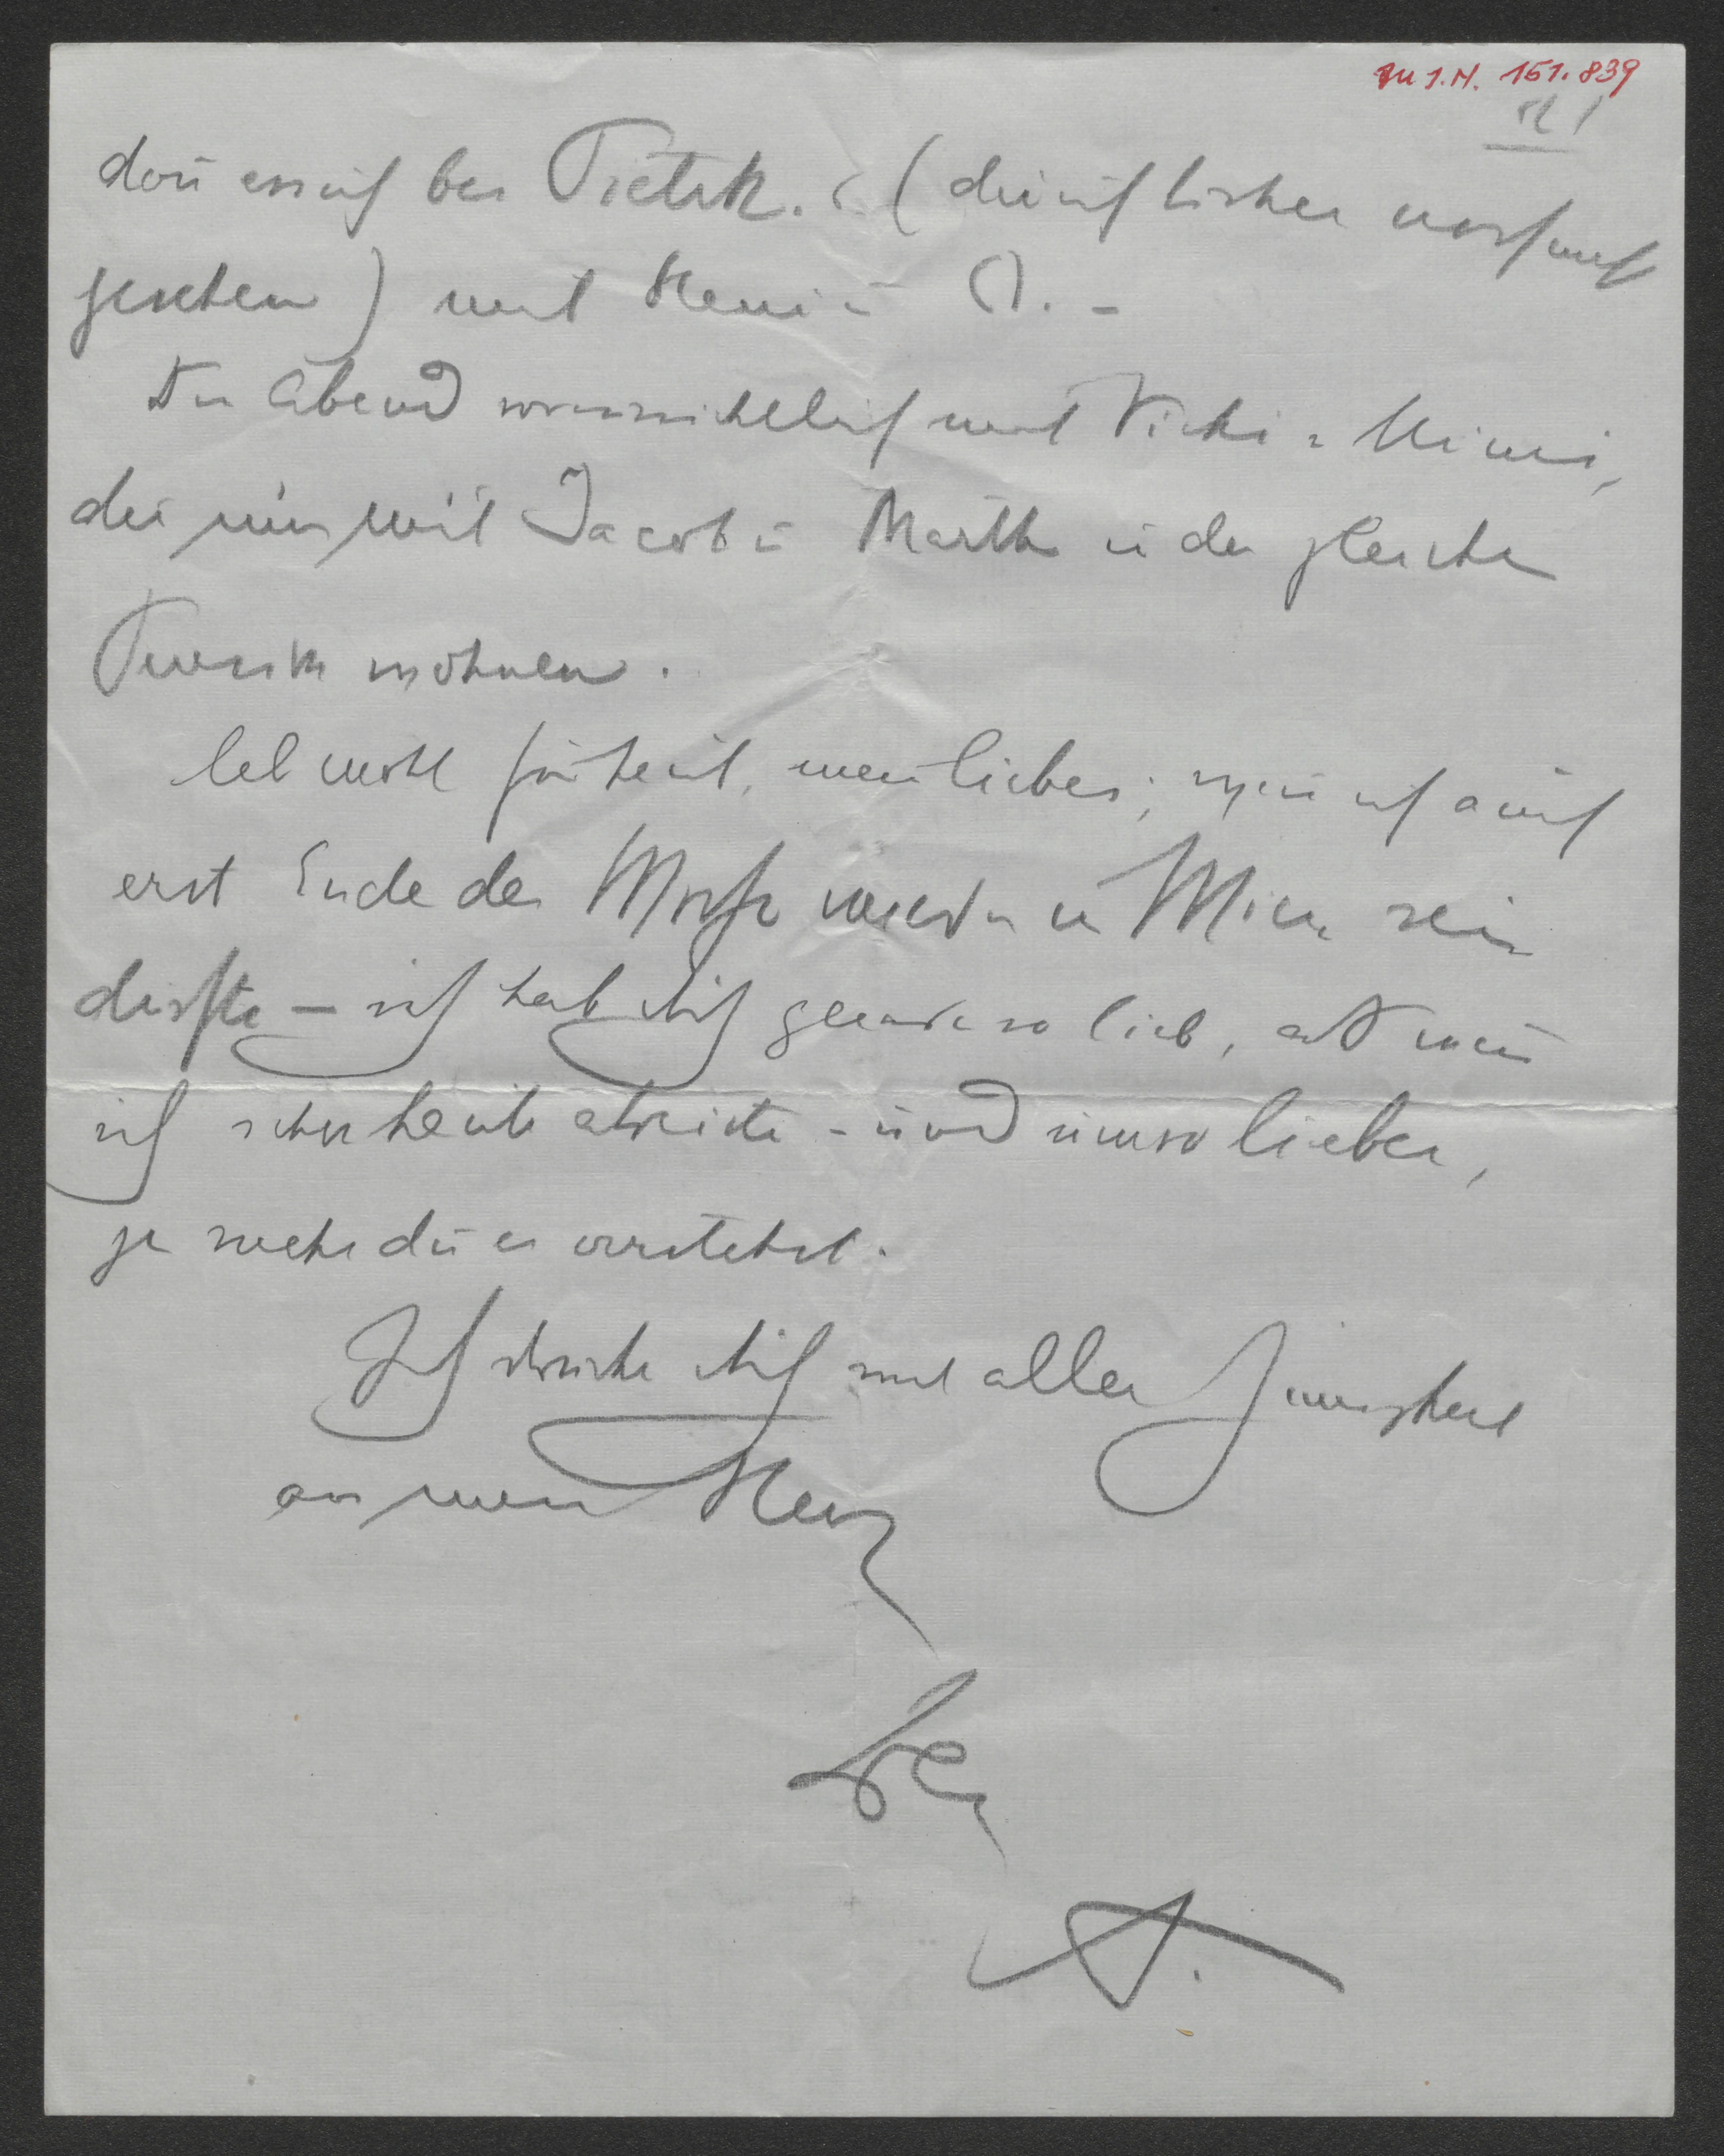 zu I.N. 151.839
dan̄ ess ich bei Tietzk. (die ich bisher noch nicht
gesehen) mit Heini u O. –
Den Abend voraussichtlich mit Vicki u Mimi,
die nun mit Jacob u Martha in der gleichen
Pension wohnen.
Leb wohl für heut, mein Lieber; wen̄ ich auch
erst Ende der Woche wieder in Wien sein
dürfte – ich hab dich genau so lieb, als wen̄
ich schon heute abreiste – und umso lieber,
je mehr du es verstehst.
Ich drücke dich mit aller Innigkeit
an mein Herz
Dein
A.